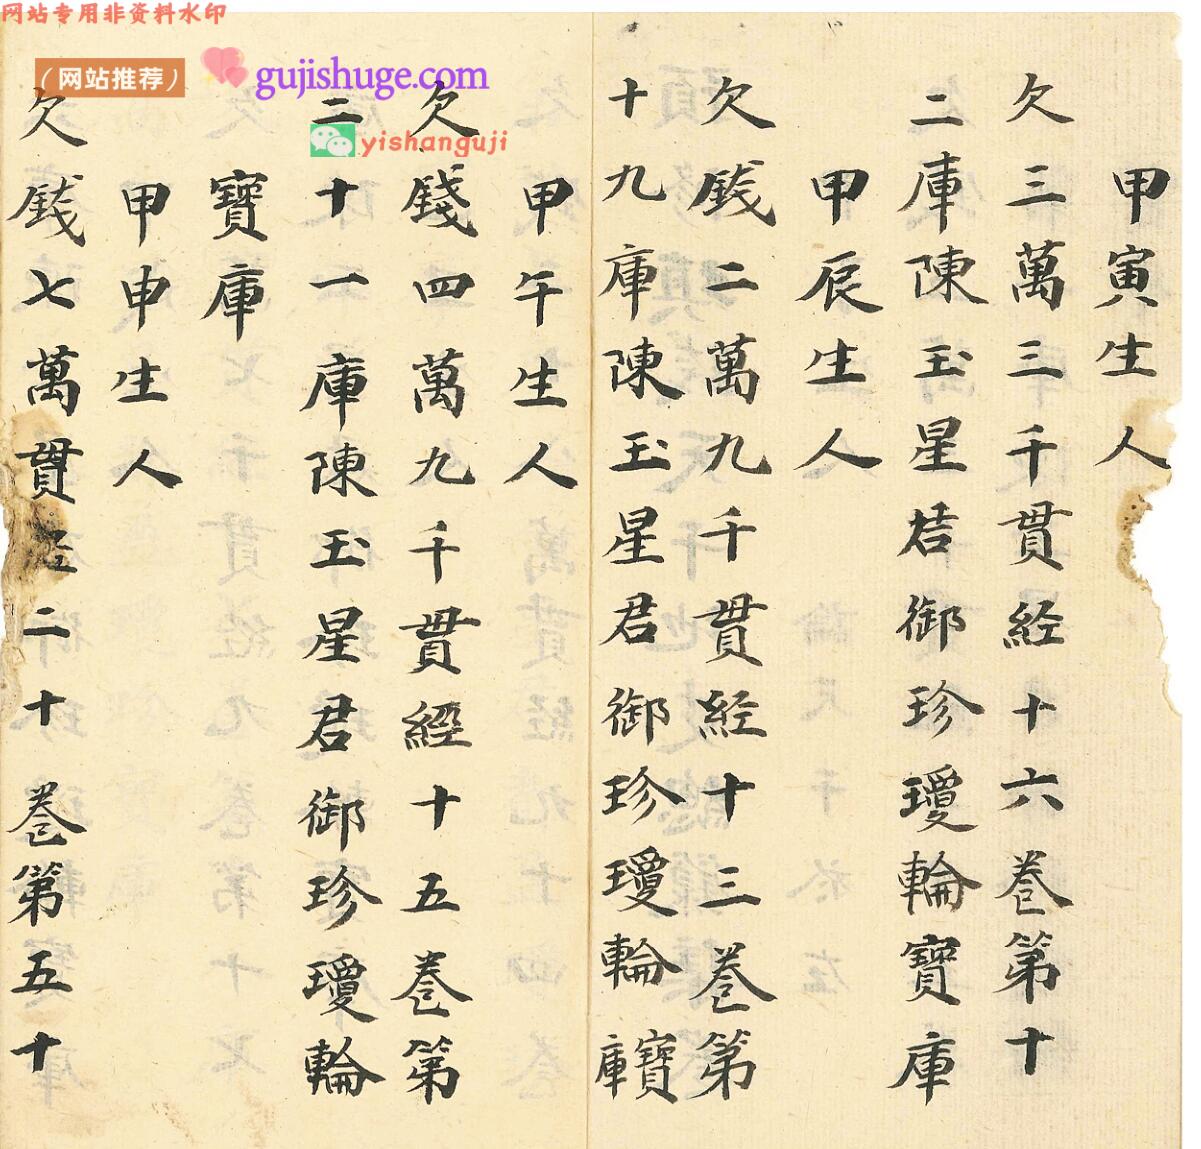 网站专用非资料水印
（网站推荐）
gujishuge.com
yishanguji
甲寅生人
欠三萬三千貫経十六卷第十
二庫陳玉星君御珍瓊輪寶庫
甲辰生人
欠銭二萬九千貫経十三卷第
十九庫陳玉星君御珍瓊輪寶庫
甲午生人
欠錢四萬九千貫經十五卷第
二十一庫陳玉星君御珍瓊輪
寶庫
甲申生人
欠銭七萬貫経二十卷第五十